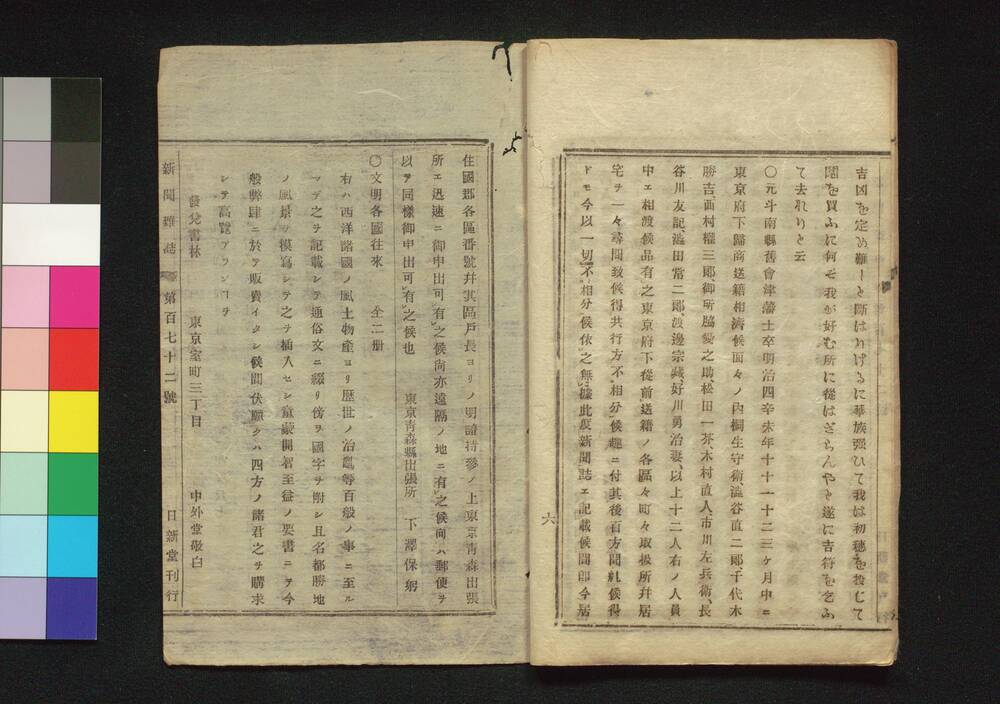 吉凶を定め難しと斷はりけるに華族强ひて我は初穗を投じて
鬮を買ふに何そ我か好む所に從はざらんやと遂に吉符を乞ふ
て去れりと云
〇元斗南縣舊會津藩士卒明治四辛未年十十一十二三ヶ月中ニ
東京府下歸商送籍相濟候面々ノ内桐生守衛、澁谷直二郎、千代木
勝吉、西村權三郎、御所脇愛之助、松田一芥、木村直人、市川左兵衛、長
谷川友記、澁田常二郎、渡邊宗藏、好川勇治妻、以上十二人右ノ人員
中エ相渡候品有之東京府下從前送籍ノ各區々町々取扱所幷居
宅ヲ一々尋問致候得共行方不相分候趣ニ付其後百方聞糺候得
ドモ今以一切不相分候依之無據此度新聞誌エ記載候間即今居
六
住國郡各區番號幷其區戶長ヨリノ明證持參ノ上東京靑森出張
所エ迅速ニ御申出可有之候尙亦遠隔ノ地ニ有之候向ハ郵便ヲ
以テ同樣御申出可有之候也 東京靑森縣出張所 下澤保躬
〇文明各國往來 全二册
右ハ西洋諸國ノ風土物產ヨリ歷世ノ治亂等百般ノ事ニ至ル
マデ之ヲ記載シテ通俗文ニ綴リ傍ヲ國字ヲ附シ且名都勝地
ノ風景ヲ模寫シテ之ヲ插入セシ童蒙開智至益ノ要書ニテ今
般弊肆ニ於テ販賣イタシ候間伏願クハ四方ノ諸君之ヲ購求
シテ高覽アランコヲ
發兌書林 東京室町三丁目 中外堂敬白
新聞雜誌 第百七十二號 日新堂刊行